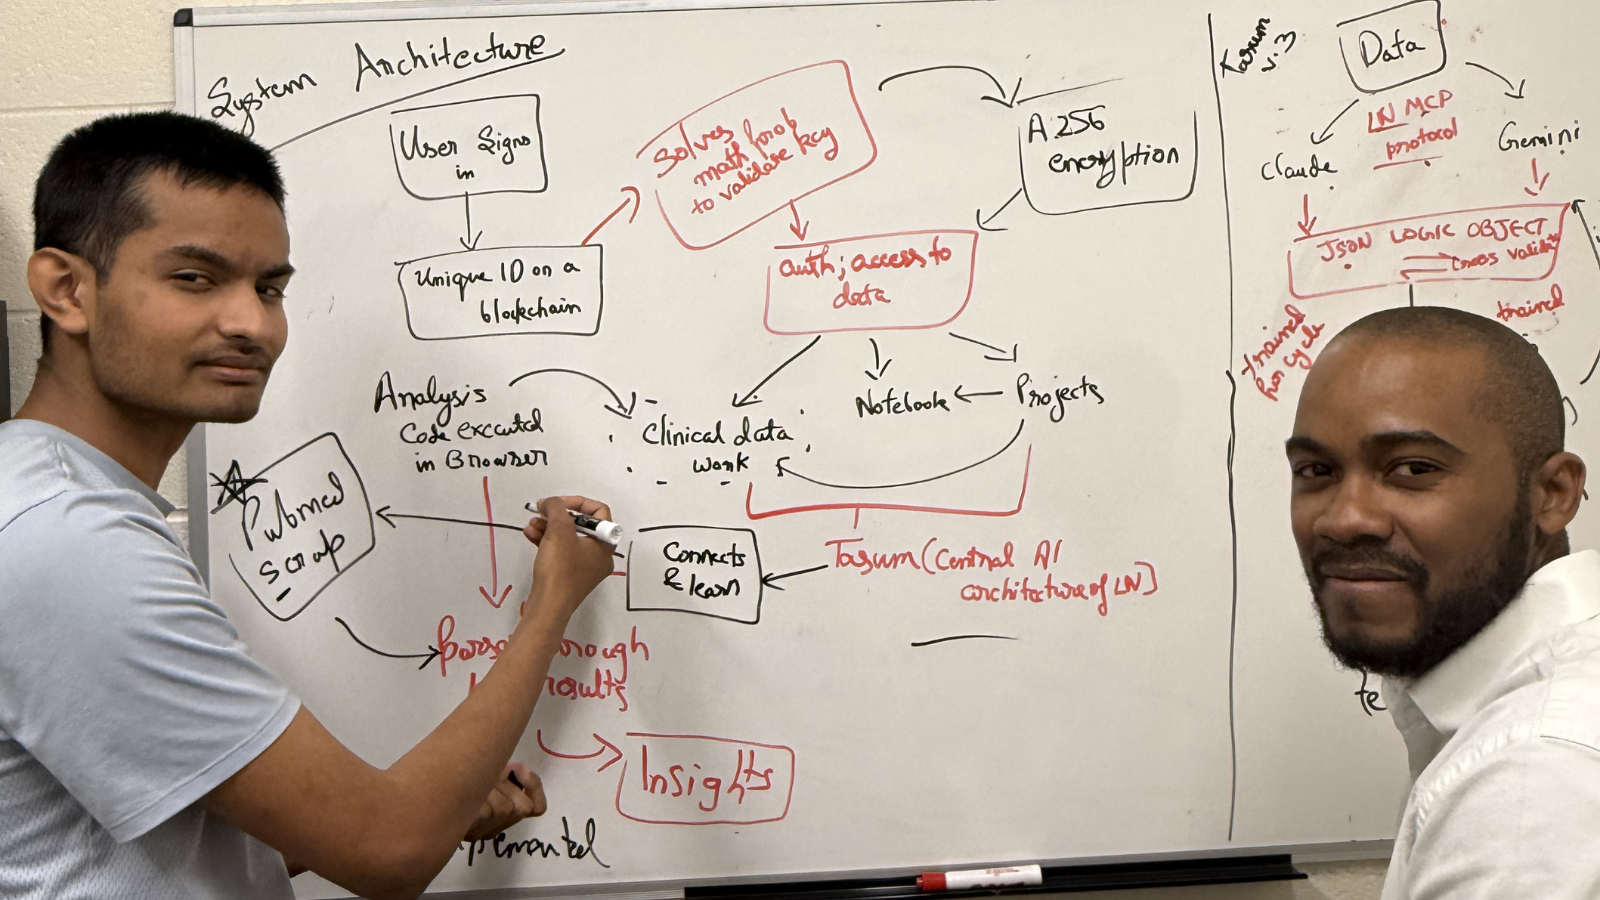 System Architecture
User Signs
in
Unique ID on a
blockchain
Solves
math prob
to validate key
A 256
encryption
auth; access to
data
Analysis
Code executed
in Browser
Clinical data
work
Notebook
Projects
Pubmed
scrap
Connects
& learn
Tasum (Central AI
architecture of LN)
through
results
Insights
Tasum
v.3
Data
LN MCP
protocol
Claude
Gemini
JSON LOGIC OBJECT
Cross validate
trained
per cycle
trained
te